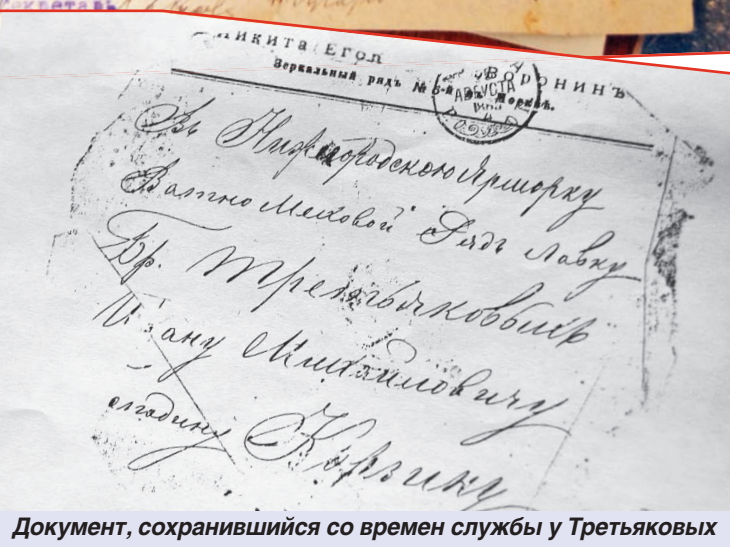 Секретарь
Никита Егор Воронинъ
Зеркальный рядъ № 5-й въ Москвѣ.
АВГУСТА
Въ Нижегородскою Ярморку
Ватно Меховой Рядъ Лавку
Бр. Третьяковыхъ
Ивану Михайловичу
Корзину
Документ, сохранившийся со времен службы у Третьяковых